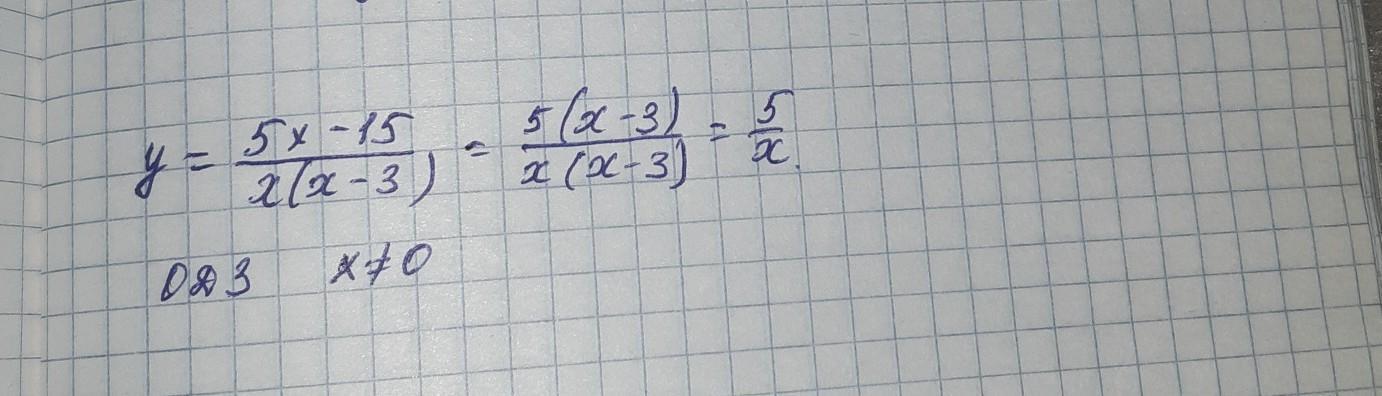 y = \frac{5x - 15}{x(x - 3)} = \frac{5(x - 3)}{x(x - 3)} = \frac{5}{x}.
ОДЗ x ≠ 0